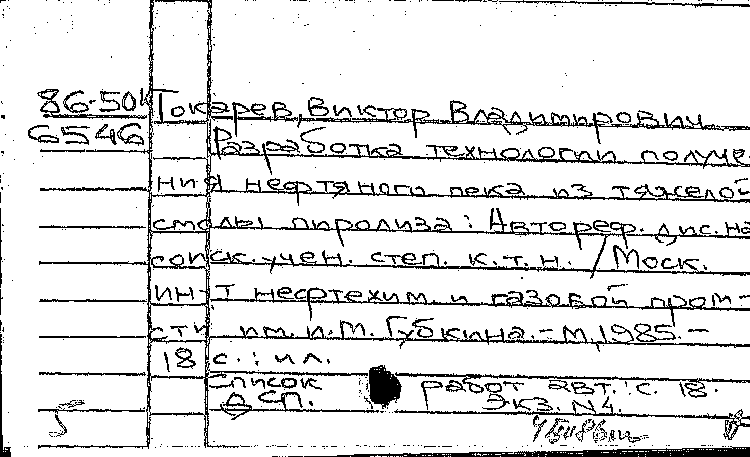 86-50к Токарев, Виктор Владимирович
6546 Разработка технологии получе-
ния нефтяного пека из тяжелой
смолы пиролиза: Автореф. дис. на
соиск. учен. степ. к.т.н. / Моск.
ин-т нефтехим. и газовой пром-
сти им. И.М. Губкина. - М, 1985. -
18 с.: ил.
Список работ авт.: с. 18.
ДСП. Экз. N4.
5